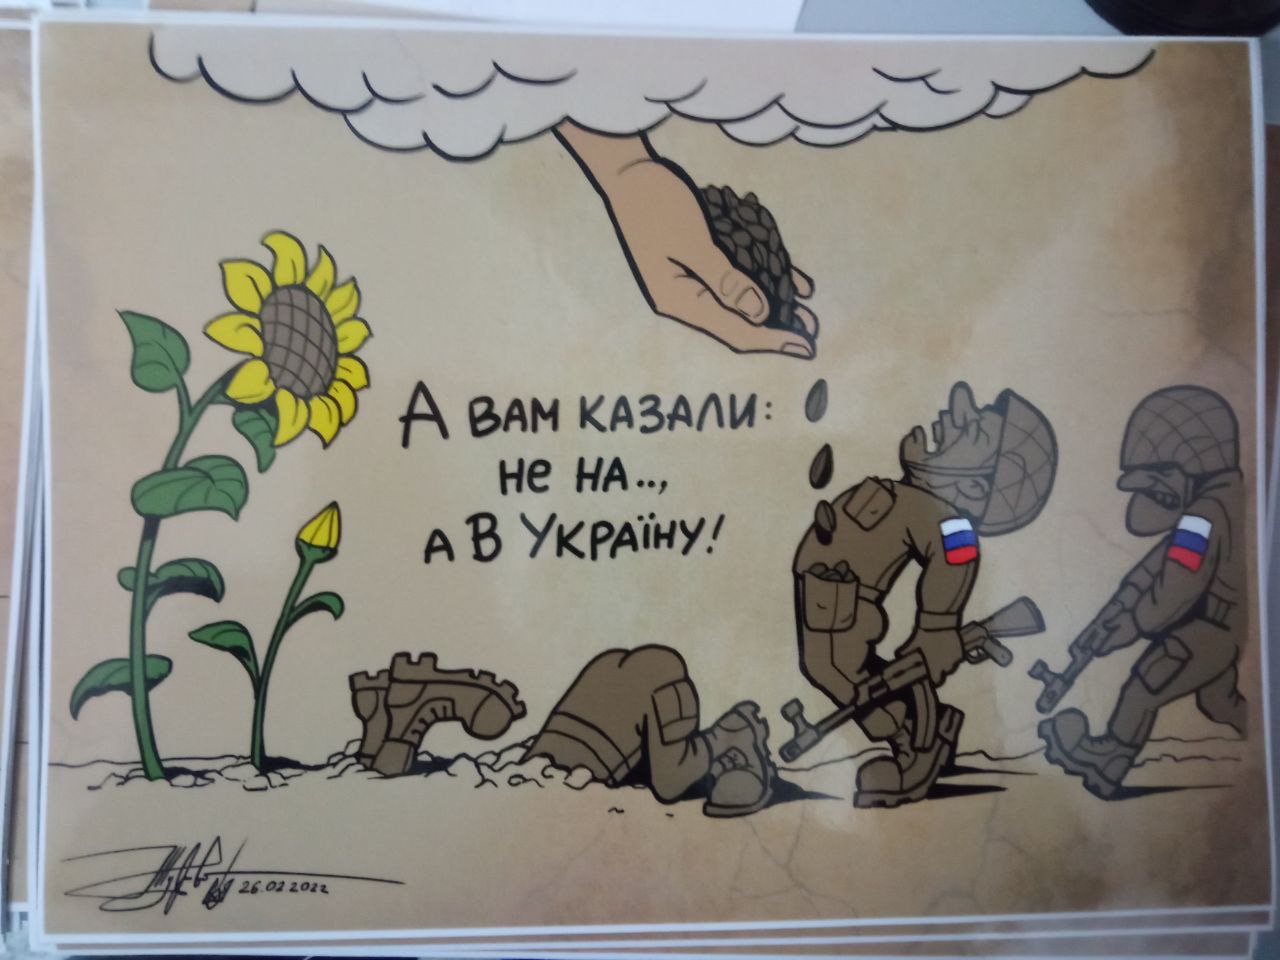 А ВАМ КАЗАЛИ:
Не НА..,
А В УКРАЇНУ!
26.02.2022